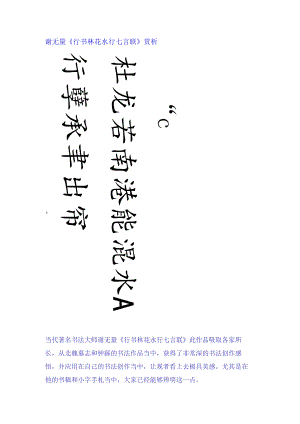 谢无量《行书林花水行七言联》赏析
“C
杜龙若南港能混水A
行孽承聿出帘
当代著名书法大师谢无量《行书林花水行七言联》此作品吸取各家所
长，从北魏墓志和钟繇的书法作品当中，获得了非常深的书法创作感
悟，并应用在自己的书法创作当中，让观者看上去极具美感，尤其是在
他的书稿和小字手札当中，大家已经能够辨明这一点。